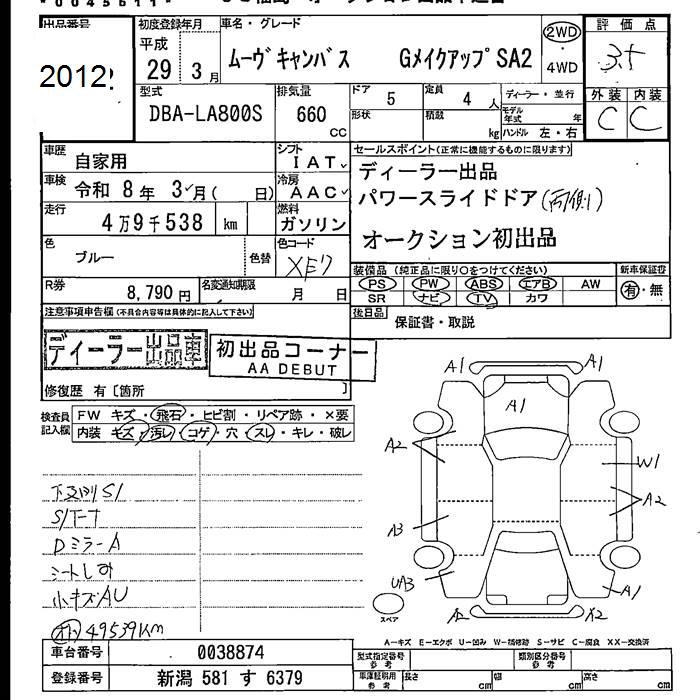 出品番号
2012
初度登録年月
平成
29年3月
車名・グレード
ムーヴキャンバス GメイクアップSA2
2WD
・4WD
評価点
3.5
型式
DBA-LA800S
排気量
660
CC
ドア
5
定員
4人
形状
積載
kg
ディーラー・並行
モデル年式 年
ハンドル 左・右
外装 内装
C C
車歴
自家用
シフト
IAT
セールスポイント(正常に機能するものに限ります)
ディーラー出品
パワースライドドア(両側)
オークション初出品
車検
令和8年3月( 日)
冷房
AAC
走行
4万9千538 km
燃料
ガソリン
色
ブルー
色替
色コード
XE7
装備品(純正品に限り○をつけてください)
PS・PW・ABS・エアB・AW
SR・ナビ・TV・カワ
新車保証書
有・無
R券
8,790円
名変通知期限
月 日
後日品
保証書・取説
注意事項申告欄(不具合内容等は具体的に記入して下さい)
ディーラー出品車
初出品コーナー
AA DEBUT
修復歴 有〔箇所 〕
検査員記入欄
FW キズ・飛石・ヒビ割・リペア跡・×要
内装 キズ・汚レ・コゲ・穴・スレ・キレ・破レ
下回りS1
S/T-T
DミラーA
シートしみ
小キズAU
オド 49539Km
A1
A1
A1
A2
W1
A2
A3
UA3
A1
A2
X2
スペア
A-キズ E-エクボ U-凹み W-補修跡 S-サビ C-腐食 XX-交換済
車台番号
0038874
型式指定番号 参考
類別区分番号 参考
登録番号
新潟 581 す 6379
車庫証明用 参考
長さ cm
幅 cm
高さ cm